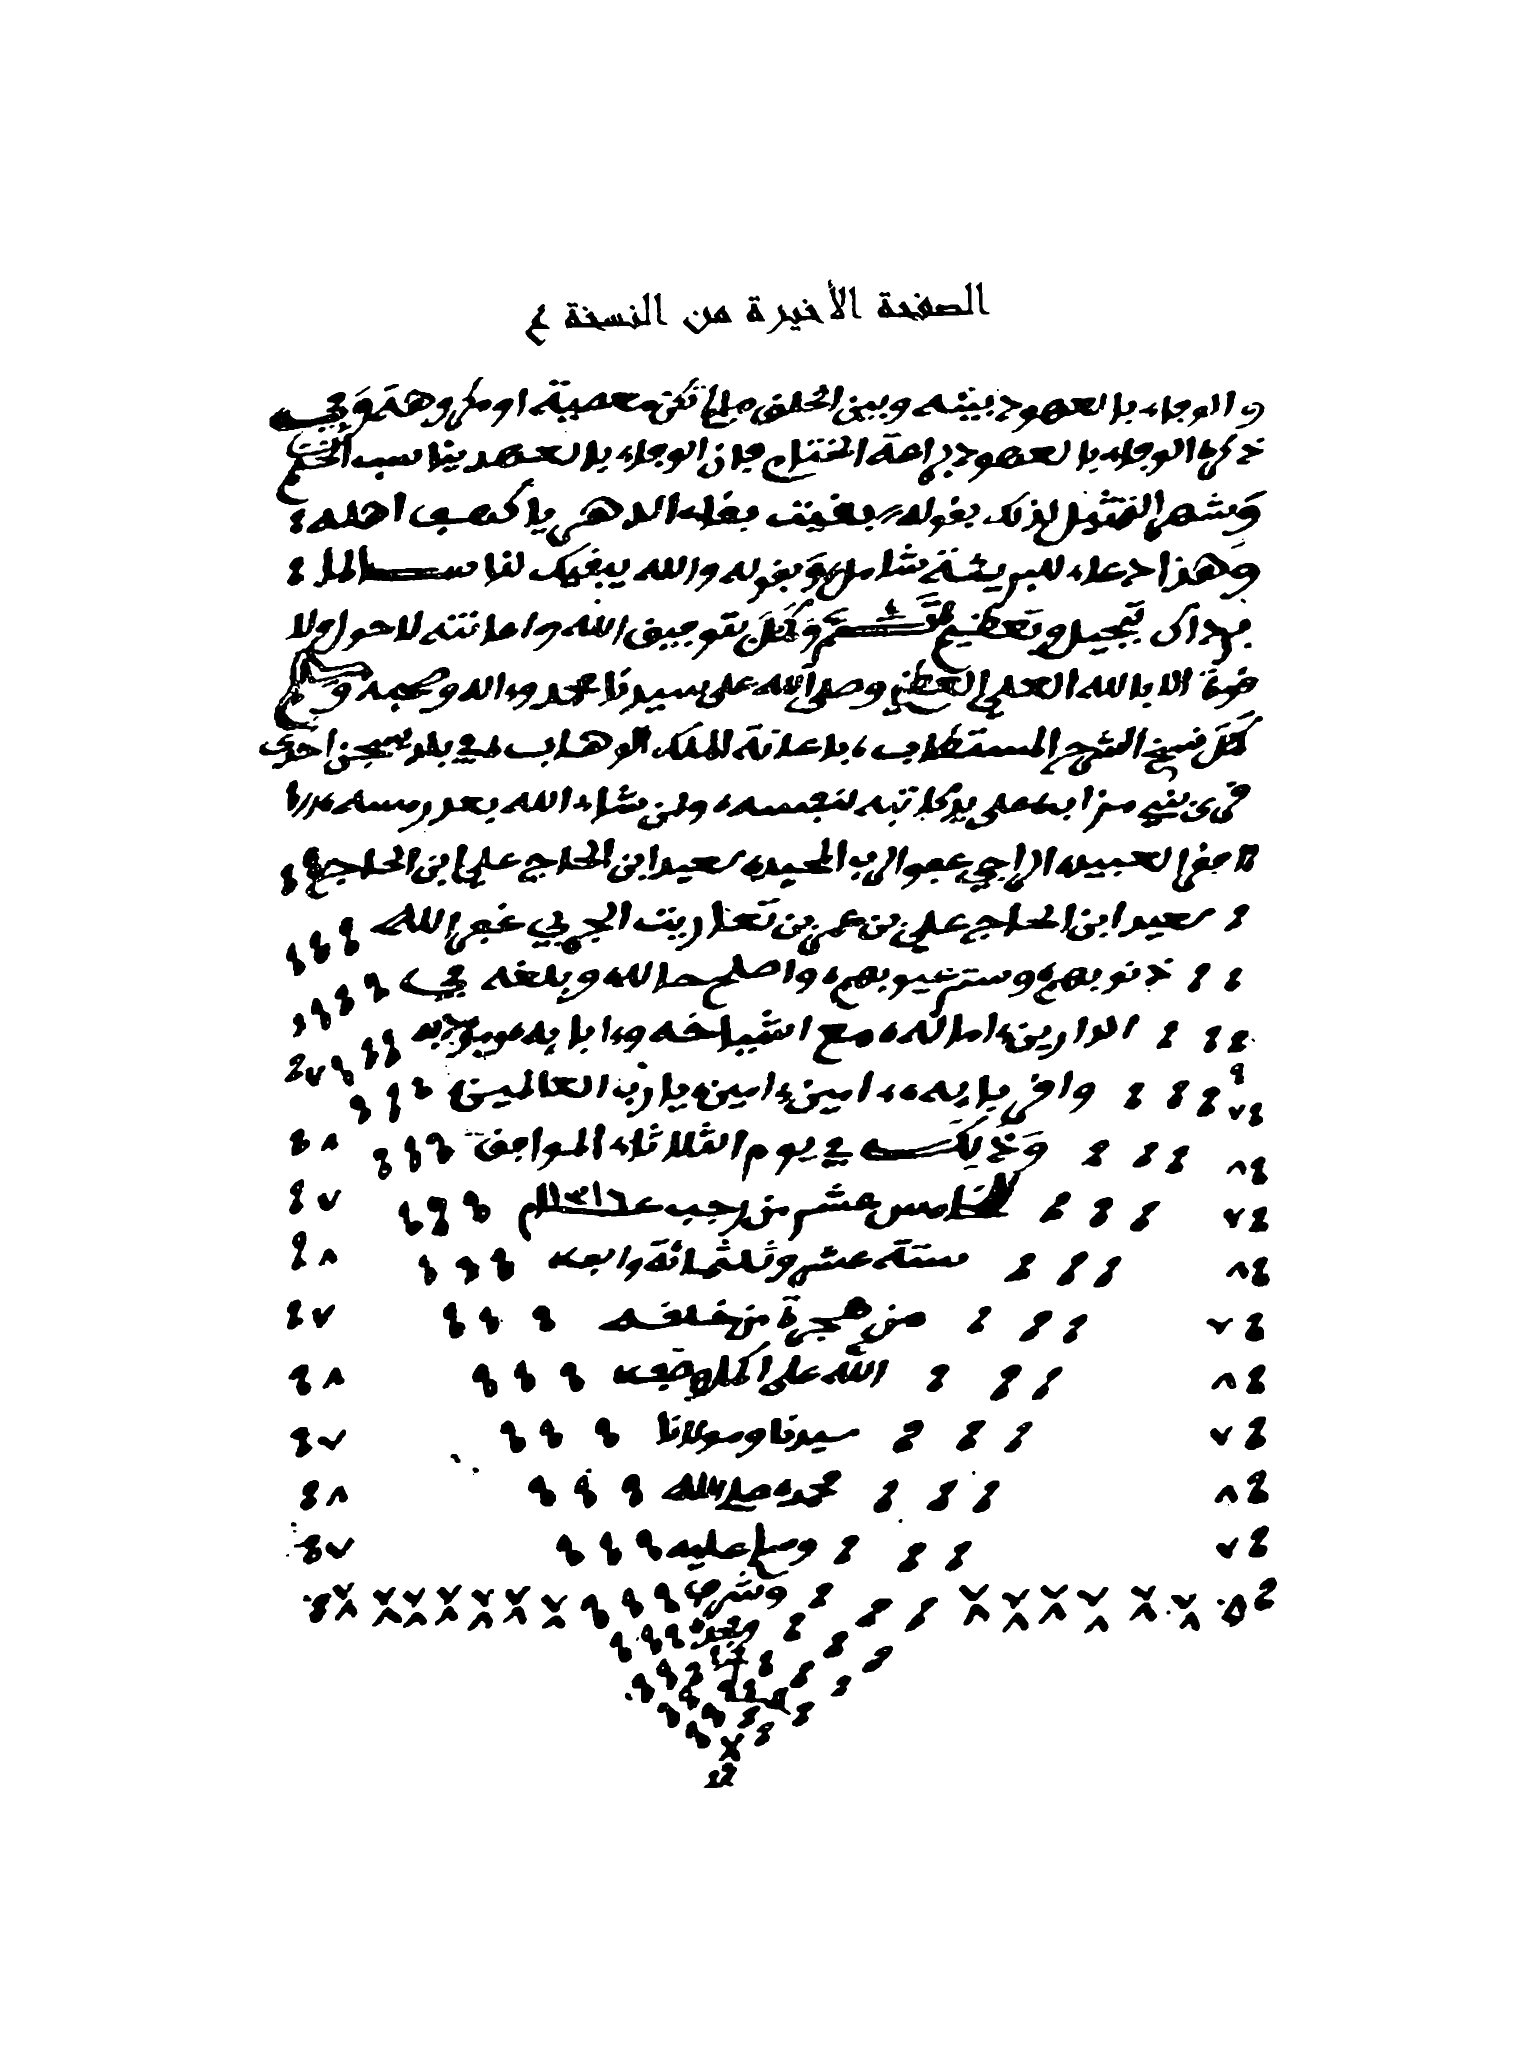 الصفحة الأخيرة من النسخة ع
والوفاء بالعهود بينه وبين الخلق ما لم تكن معصية او مكروهة وفي
ذكر الوفاء بالعهود براعة المختتم فإن الوفاء بالعهد يناسب الختم
وشهر التمثيل لذلك بقوله بقيت بقاء الدهر يا كهف اهله
وهذا دعاء للبريئة شامل وبقوله والله يبقيك لنا سالما
برداك تبجيل وتعظيم تم وكمل بتوفيق الله واعانته لا حول ولا
قوة الا بالله العلي العظيم وصلى الله على سيدنا محمد وءاله وصحبه وسلم
كمل نسخ الشرح المستطاب، باعانة الملك الوهاب، في بلد يسجن احدى
قرى بني مزاب، على يد كاتبه لنفسه، ولمن شاء الله بعد رمسه،
افقر العبيد، الراجي عفو الرب المجيد، سعيد ابن الحاج علي ابن الحاج
سعيد ابن الحاج علي بن عمر بن تعاريت الجربي غفر الله
ذنوبهم، وستر عيوبهم، واصلح حاله، وبلغه في
الدارين، اماله، مع اشياخه وءابايه،
واقربايه،، امين، امين، يا رب العالمين،
وذلك في يوم الثلاثاء الموافق
الخامس عشر من رجب ١٣١٦ عام
ستة عشر وثلثمائة والف
من هجرة من خلقه
الله على اكمل وصف
سيدنا ومولانا
محمد، صلى الله
وسلم عليه
وشرف
ومجد